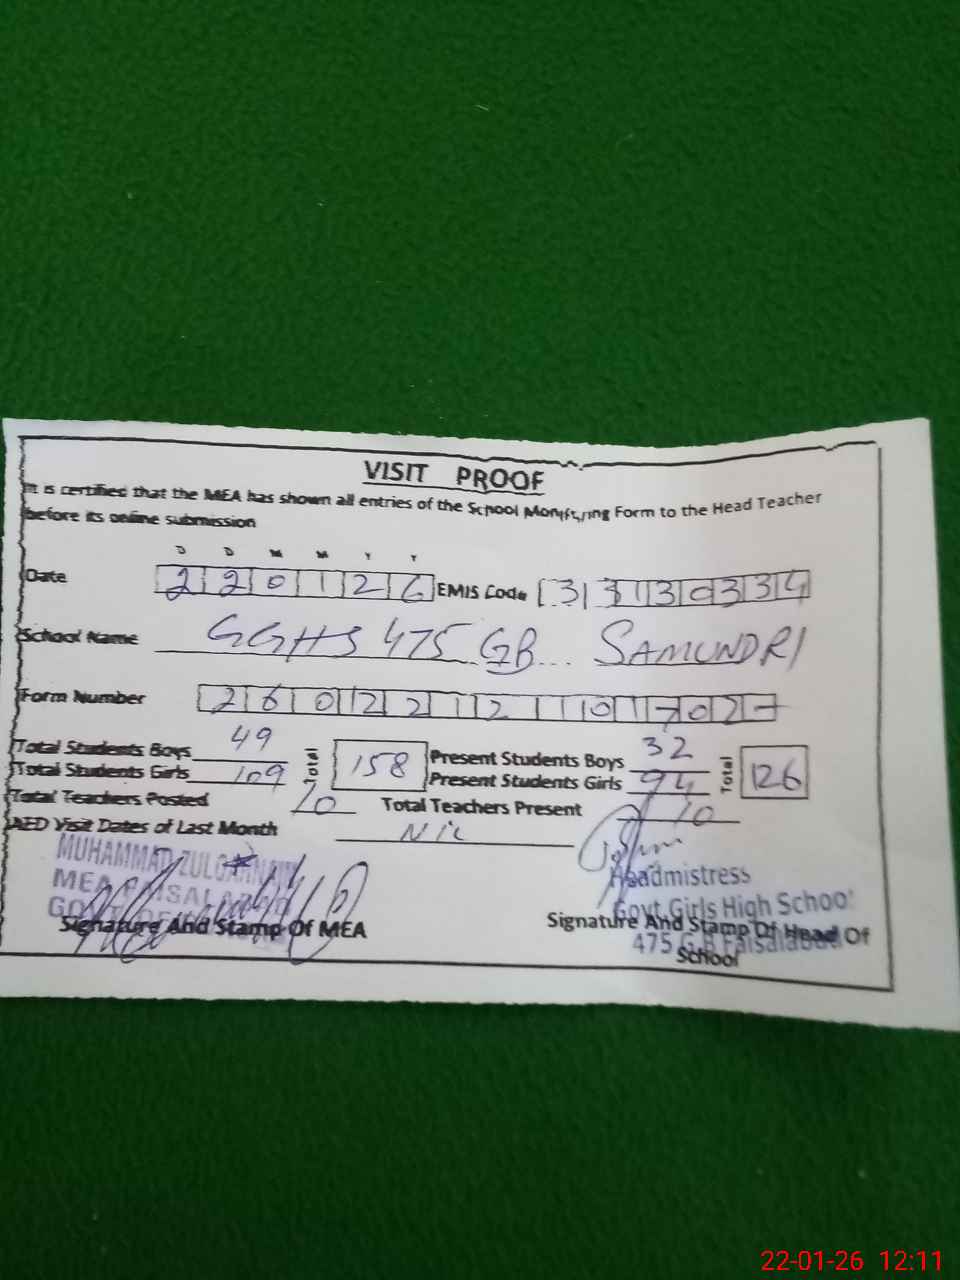 VISIT PROOF
It is certified that the MEA has shown all entries of the School Monitoring Form to the Head Teacher
before its online submission
D D M M Y Y
Date 220126 EMIS Code 33130334
School Name GGHS 475 GB SAMUNDRI
Form Number
Total Students Boys 49 Total 158 Present Students Boys 32 Total 126
Total Students Girls 109 Present Students Girls 94
Total Teachers Posted Total Teachers Present 10
AEO Visit Dates of Last Month Nil
MUHAMMAD ZULQARNAIN
MEA FAISALABAD
Signature And Stamp Of MEA
Headmistress
Govt. Girls High School
Signature And Stamp Of Head Of
475 G.B Faisalabad
School
22-01-26 12:11